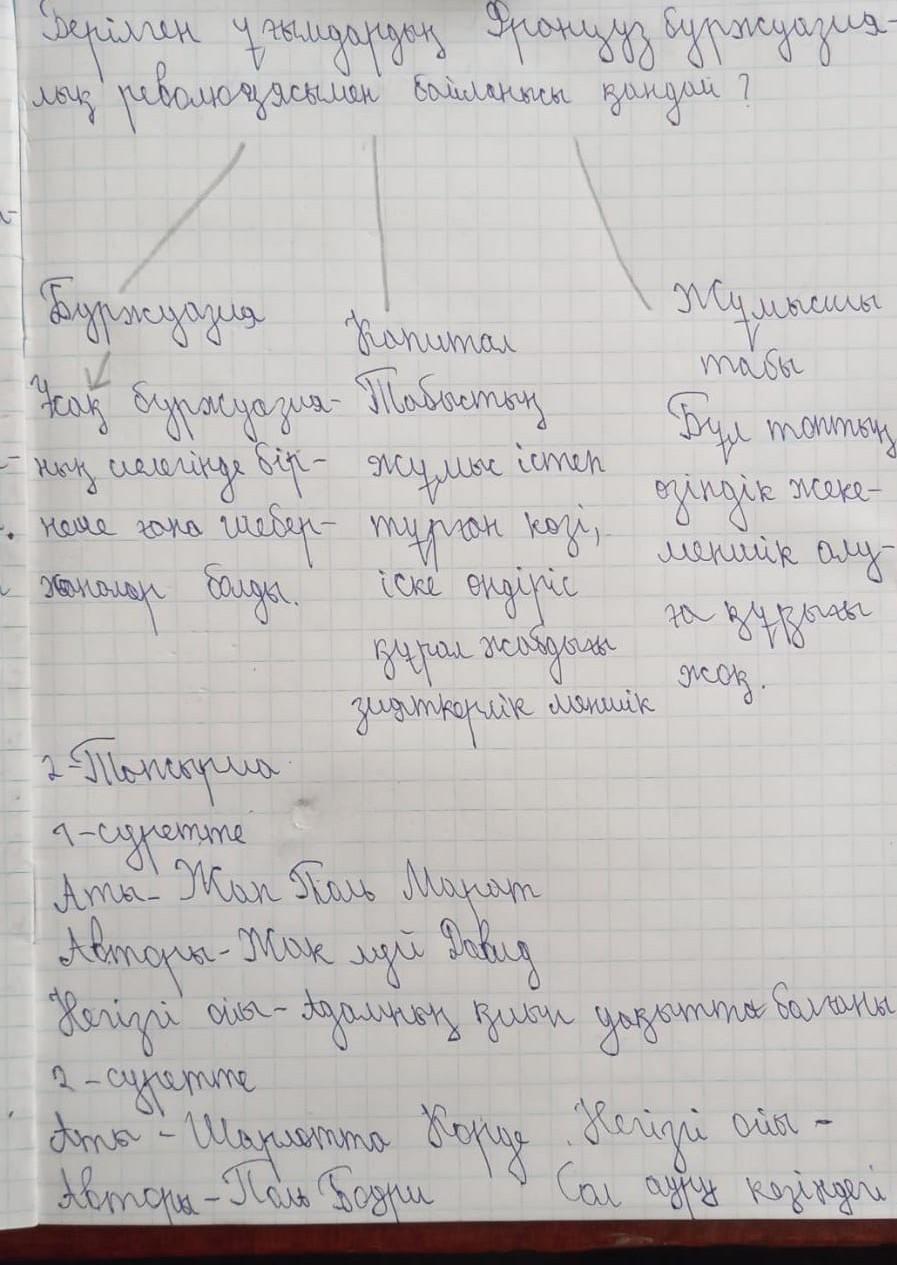 Берілген ұғымдардың Француз буржуазия-
лық революциясымен байланысы қандай?
Буржуазия
Жаң буржуазия-
ның иелегінде бір-
неше ғана шебер-
ханалар болды.
Капитал
Табыстың
жұмыс істеп
тұрған көзі,
іске өндіріс
құрал жабдығы
зияткерлік меншік
Жұмысшы
табы
Бұл топтың
өзіндік жеке-
меншік алу-
ға құқығы
жоқ.
2-Тапсырма
1-суретте
Аты- Жан Поль Марат
Авторы-Жак луй Давид
Негізгі ойы- Адамның қиын уақытта болғаны
2-суретте
Аты - Шарлотта Корде. Негізгі ойы -
Авторы-Поль Бодри Сол ауру кезіндегі